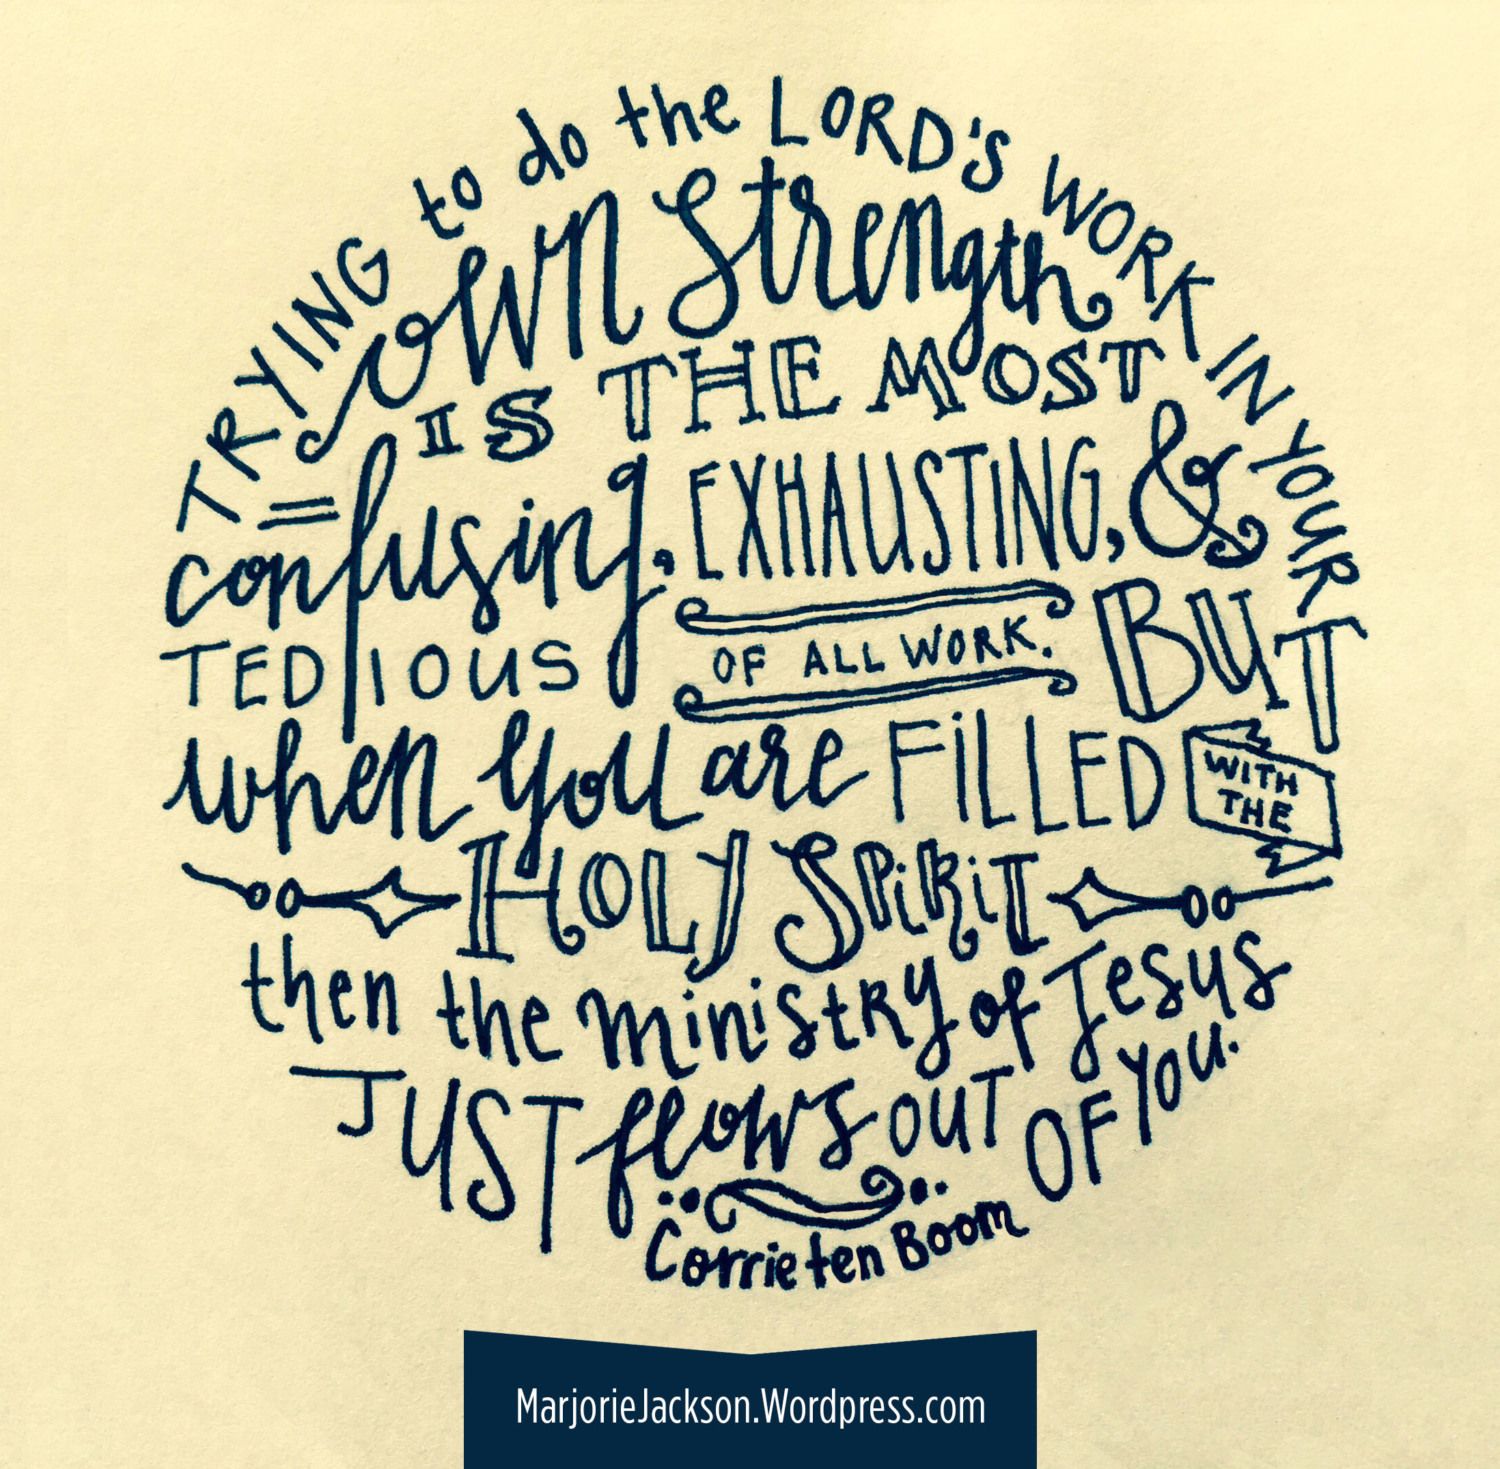 TRYING to do the LORD'S WORK IN YOUR
own Strength
IS THE MOST
confusing, EXHAUSTING, &
TEDIOUS OF ALL WORK. BUT
when you are FiLLED WITH THE
HOLY SPiRiT
then the ministRy of Jesus
JUST flows OUT OF YOU.
Corrie ten Boom
MarjorieJackson.Wordpress.com